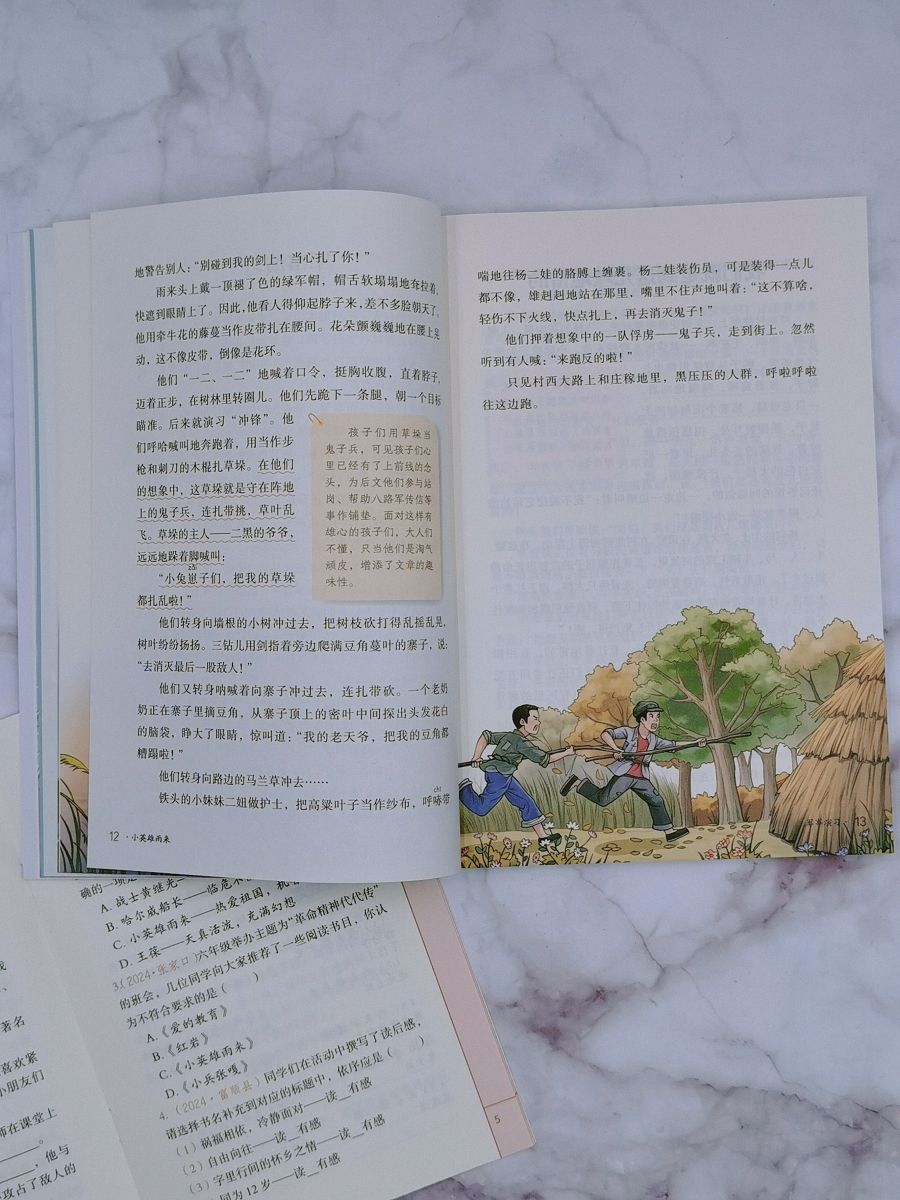 地警告别人：“别碰到我的剑上！当心扎了你！”
雨来头上戴一顶褪了色的绿军帽，帽舌软塌塌地耷拉着，
快遮到眼睛上了。因此，他看人得仰起脖子来，差不多脸朝天了。
他用牵牛花的藤蔓当作皮带扎在腰间。花朵颤巍巍地在腰上晃
动，这不像皮带，倒像是花环。
他们“一二、一二”地喊着口令，挺胸收腹，直着脖子，
迈着正步，在树林里转圈儿。他们先跪下一条腿，朝一个目标
瞄准。后来就演习“冲锋”。他
们呼哈喊叫地奔跑着，用当作步
枪和刺刀的木棍扎草垛。在他们
的想象中，这草垛就是守在阵地
上的鬼子兵，连扎带挑，草叶乱
飞。草垛的主人——二黑的爷爷，
远远地跺着脚喊叫：
zǎi
“小兔崽子们，把我的草垛
都扎乱啦！”
孩子们用草垛当
鬼子兵，可见孩子们心
里已经有了上前线的念
头，为后文他们参与站
岗、帮助八路军传信等
事作铺垫。面对这样有
雄心的孩子们，大人们
不懂，只当他们是淘气
顽皮，增添了文章的趣
味性。
他们转身向墙根的小树冲过去，把树枝砍打得乱摇乱晃，
树叶纷纷扬扬。三钻儿用剑指着旁边爬满豆角蔓叶的寨子，说：
“去消灭最后一股敌人！”
他们又转身呐喊着向寨子冲过去，连扎带砍。一个老奶
奶正在寨子里摘豆角，从寨子顶上的密叶中间探出头发花白
的脑袋，睁大了眼睛，惊叫道：“我的老天爷，把我的豆角都
糟蹋啦！”
他们转身向路边的马兰草冲去……
chī
铁头的小妹妹二妞做护士，把高粱叶子当作纱布，呼哧带
12 · 小英雄雨来
喘地往杨二娃的胳膊上缠裹。杨二娃装伤员，可是装得一点儿
都不像，雄赳赳地站在那里，嘴里不住声地叫着：“这不算啥，
轻伤不下火线，快点扎上，再去消灭鬼子！”
他们押着想象中的一队俘虏——鬼子兵，走到街上。忽然
听到有人喊：“来跑反的啦！”
只见村西大路上和庄稼地里，黑压压的人群，呼啦呼啦
往这边跑。
军事演习 · 13
A. 战士黄继光——临危不
B. 哈尔威船长——
C. 小英雄雨来——热爱祖国，机
D. 王葆——天真活泼，充满幻想
3.(2024·张家口)六年级举办主题为“革命精神代代传”
的班会，几位同学向大家推荐了一些阅读书目，你认
为不符合要求的是（ ）
A.《爱的教育》
B.《红岩》
C.《小英雄雨来》
D.《小兵张嘎》
4.（2024·富顺县）同学们在活动中撰写了读后感，
请选择书名补充到对应的标题中，依序应是（ ）
（1）祸福相依，冷静面对——读__有感
（2）自由向往——读__有感
（3）字里行间的怀乡之情——读__有感
同为12岁——读__有感
5
著名
喜欢紧
小朋友们
师在课堂上
，他与
攻占了敌人的